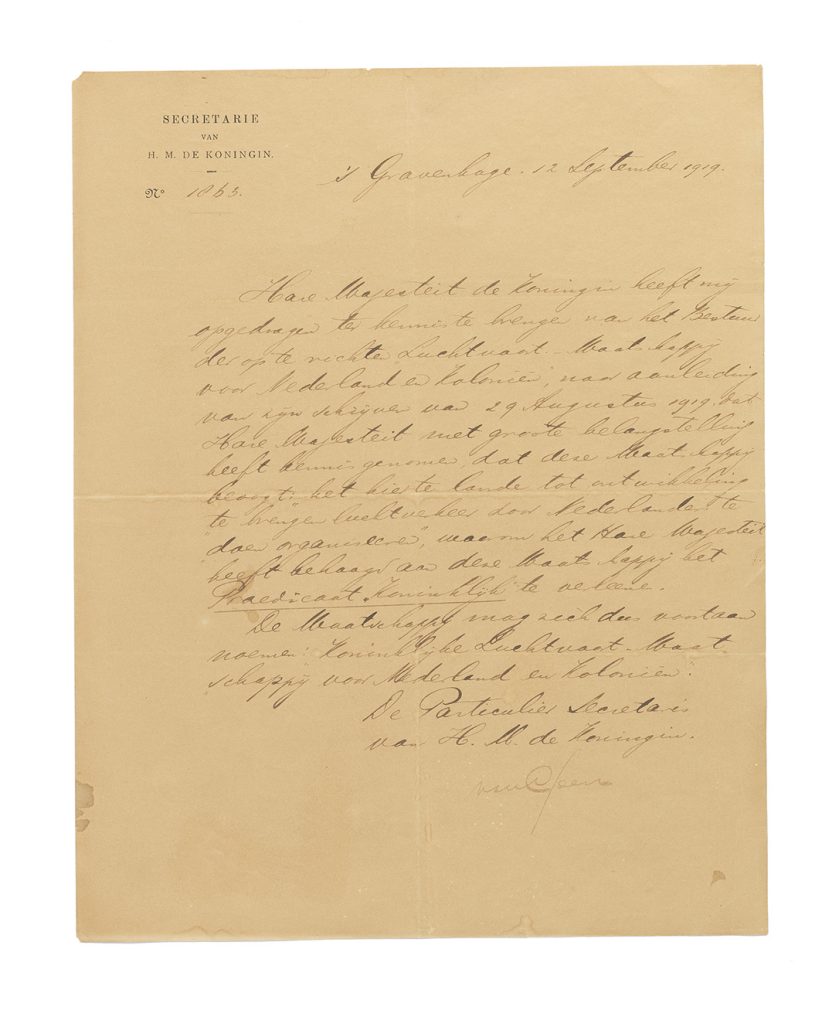 SECRETARIE
VAN
H. M. DE KONINGIN.
No 1863.
's Gravenhage. 12 September 1919.
Hare Majesteit de Koningin heeft mij
opgedragen ter kennis te brengen van het Bestuur
der op te richten Luchtvaart-Maatschappij
voor Nederland en Koloniën, naar aanleiding
van zijn schrijven van 29 Augustus 1919, dat
Hare Majesteit met groote belangstelling
heeft kennisgenomen, dat deze Maatschappij
beoogt: "het hier te lande tot ontwikkeling
te brengen luchtverkeer door Nederlanders te
doen organiseeren", waarom het Hare Majesteit
heeft behaagd aan deze Maatschappij het
Praedicaat Koninklijk te verleenen.
De Maatschappij mag zich dus voortaan
noemen: "Koninklijke Luchtvaart-Maat-
"schappij voor Nederland en Koloniën".
De Particulier Secretaris
van H. M. de Koningin.
van Geen